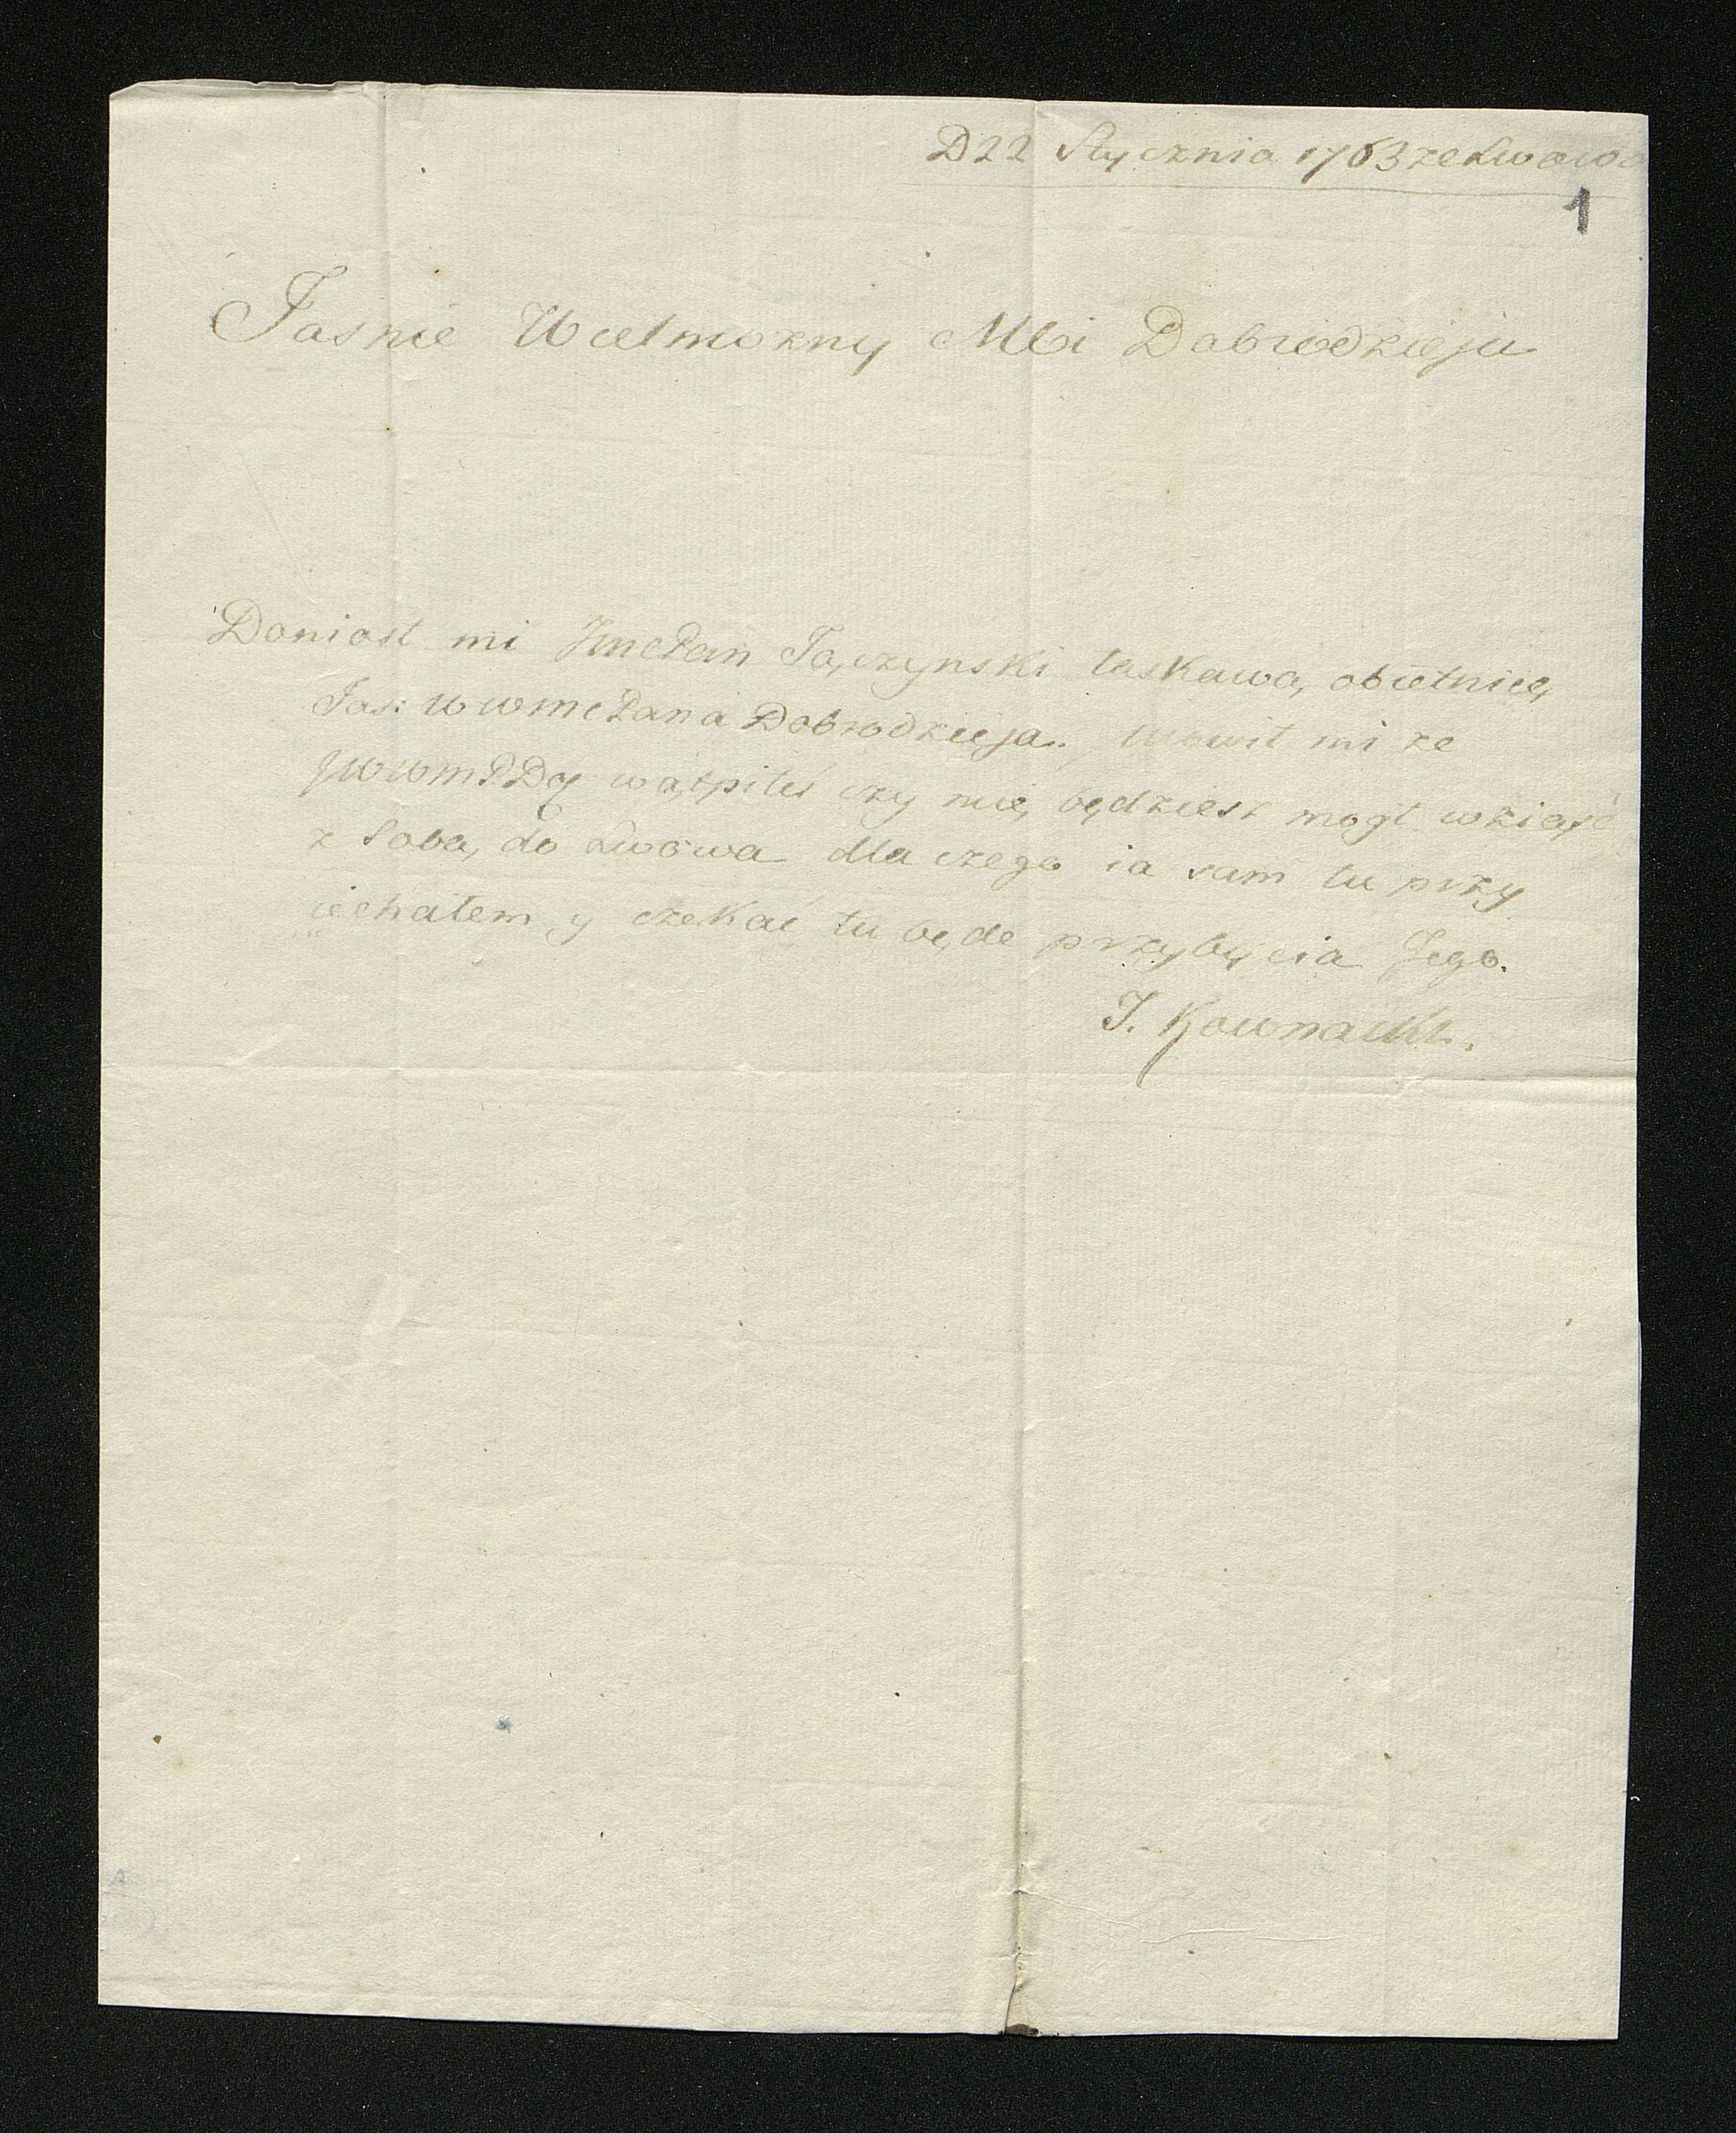 D 22 Stycznia 1763 ze Lwowa
1
Jasnie Wielmozny Mći Dobrodzieju
Doniosł mi JmcPan Tączynski łaskawą obietnicę
Jas: WWmcPana Dobrodzieja. Mowił mi ze
JWWmPDg wątpiłes czy mię będziesz mogł wziąść
z Sobą do Lwowa dla czego ia sam tu przy
iechałem y czekać tu będe przybycia Jego.
J. Kownacki.